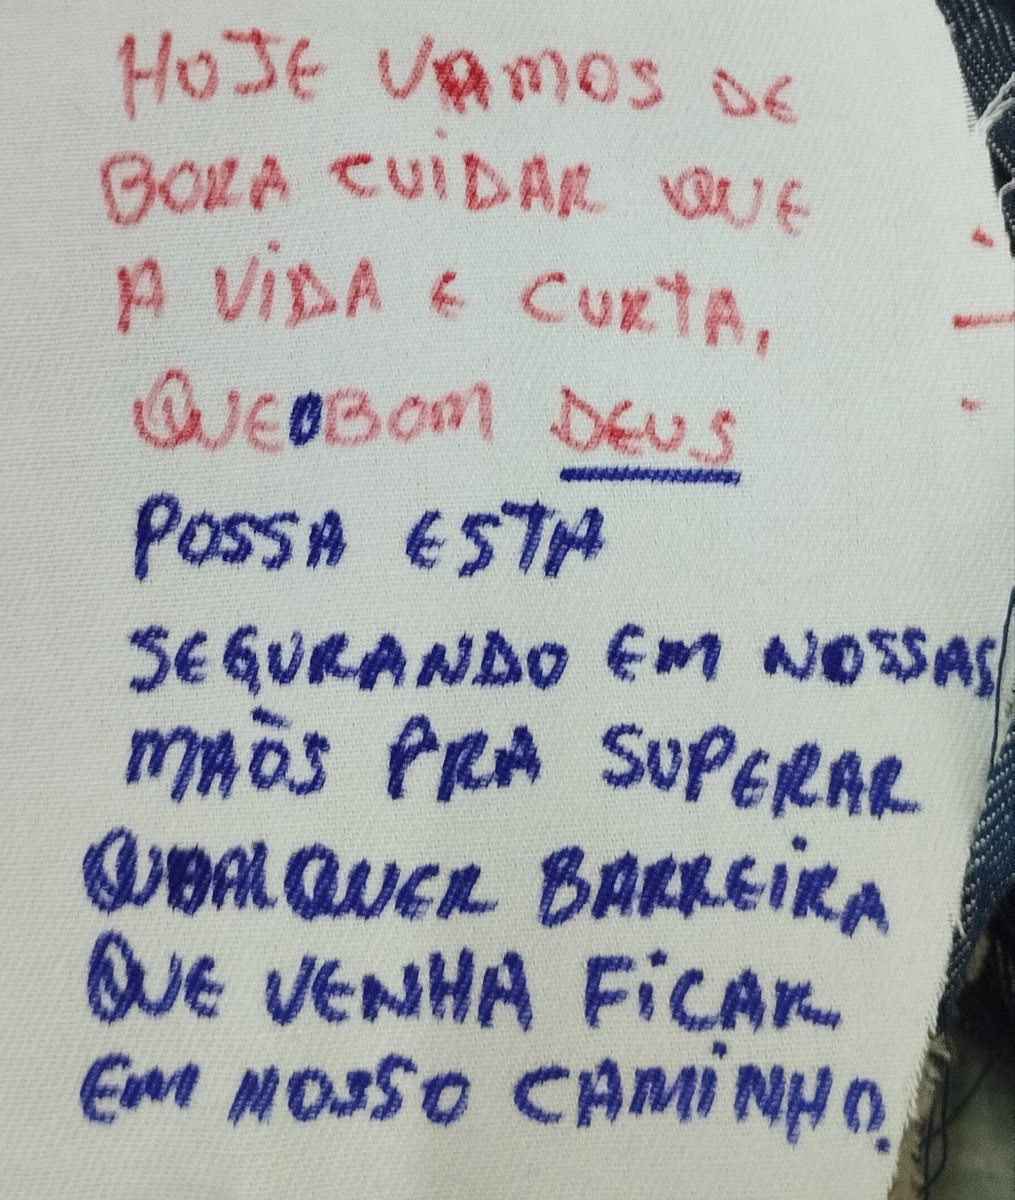 HOJE VAMOS DE
BORA CUIDAR QUE
A VIDA E CURTA,
QUE O BOM DEUS
POSSA ESTA
SEGURANDO EM NOSSAS
MAÕS PRA SUPERAR
QUALQUER BARREIRA
QUE VENHA FICAR
EM NOSSO CAMINHO.